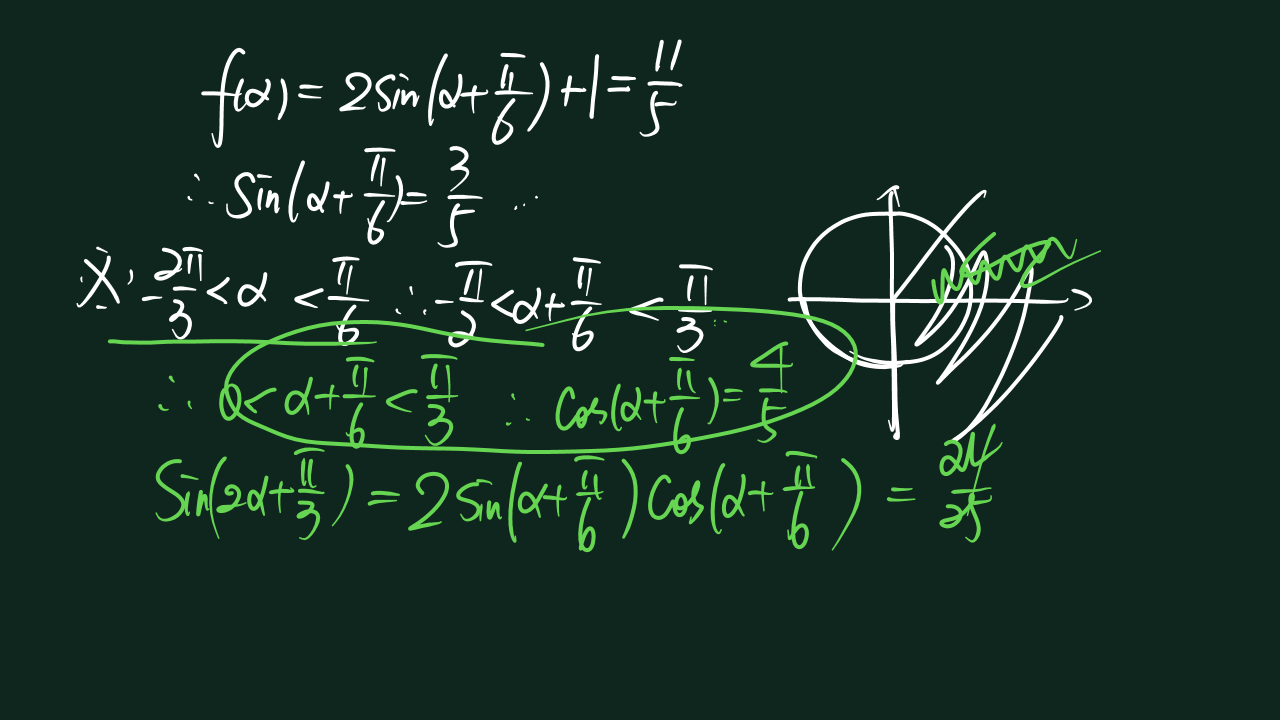 f(α) = 2sin(α+π/6)+1=11/5
∴ Sin(α+π/6)=3/5 ...
又∵ -2π/3<α<π/6 ∴ -π/2<α+π/6<π/3
∴ 0<α+π/6<π/3 ∴ Cos(α+π/6)=4/5
Sin(2α+π/3)=2Sin(α+π/6)Cos(α+π/6)=24/25